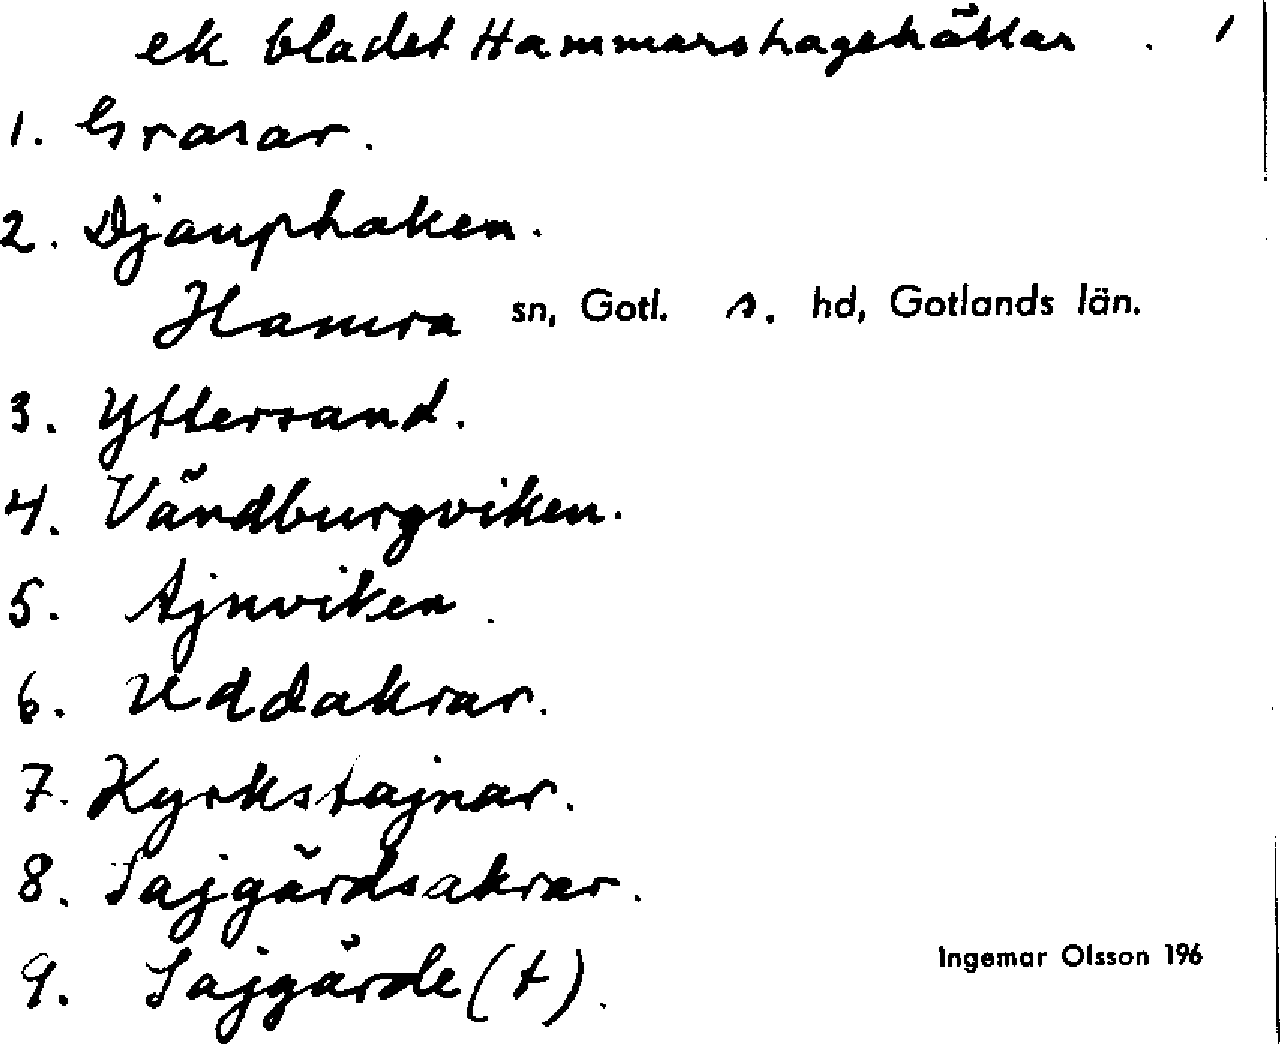 ek bladet Hammarshagehällar . 1
1. Grasar.
2. Djauphaken.
Hamra sn, Gotl. s. hd, Gotlands län.
3. Yttersand.
4. Vändburgviken.
5. Ajnviken.
6. Uddakrar.
7. Kyrkstajnar.
8. Sajgärdsakrar.
9. Sajgärde (t).
Ingemar Olsson 196